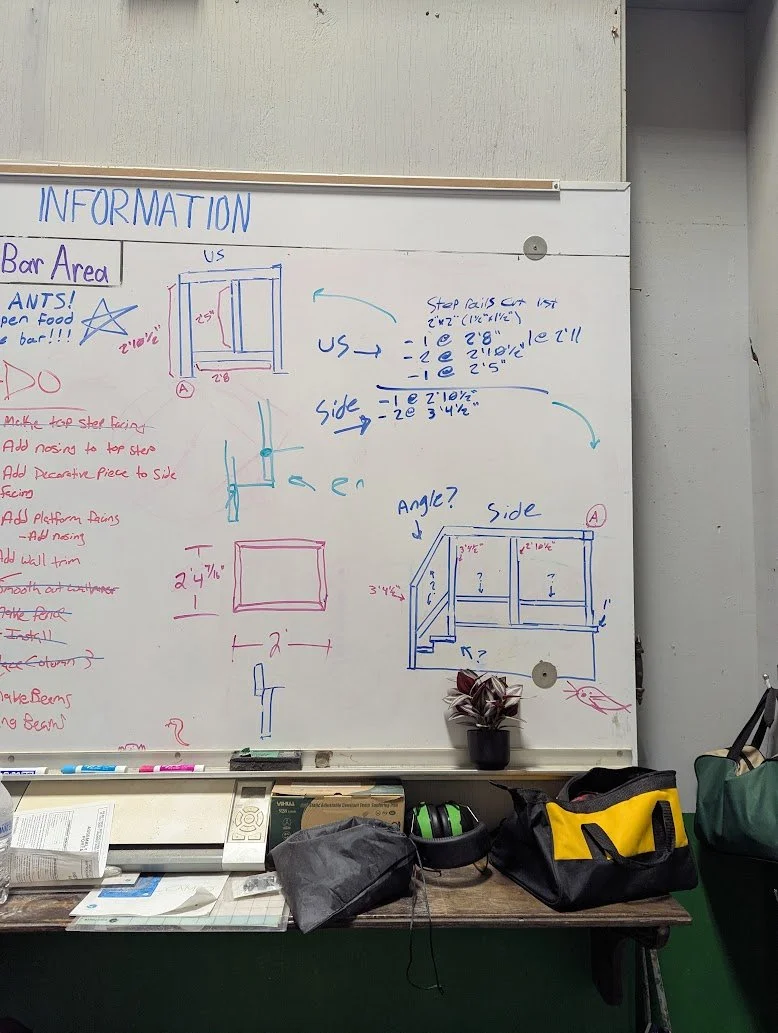 INFORMATION
Bar Area
ANTS!
pen food
e bar!!!
DO
Make top step facing
Add nosing to top step
Add Decorative Piece to Side
facing
Add Platform facing
-Add nosing
Add wall trim
Make fence
- Install
Make Beams
ng Beam
US
2'10½"
25"
2'8
A
Step rails cut list
2"x2" (1½"x1½")
US → - 1 @ 2'8" 1 @ 2'11
- 2 @ 2'10½"
- 1 @ 2'5"
Side → - 1 @ 2'10½"
- 2 @ 3'4½"
2'4 7/16"
2'
Angle?
Side
A
3'4½"
2'10½"
3'4½"
?
?
?
1"
?
VEVOR